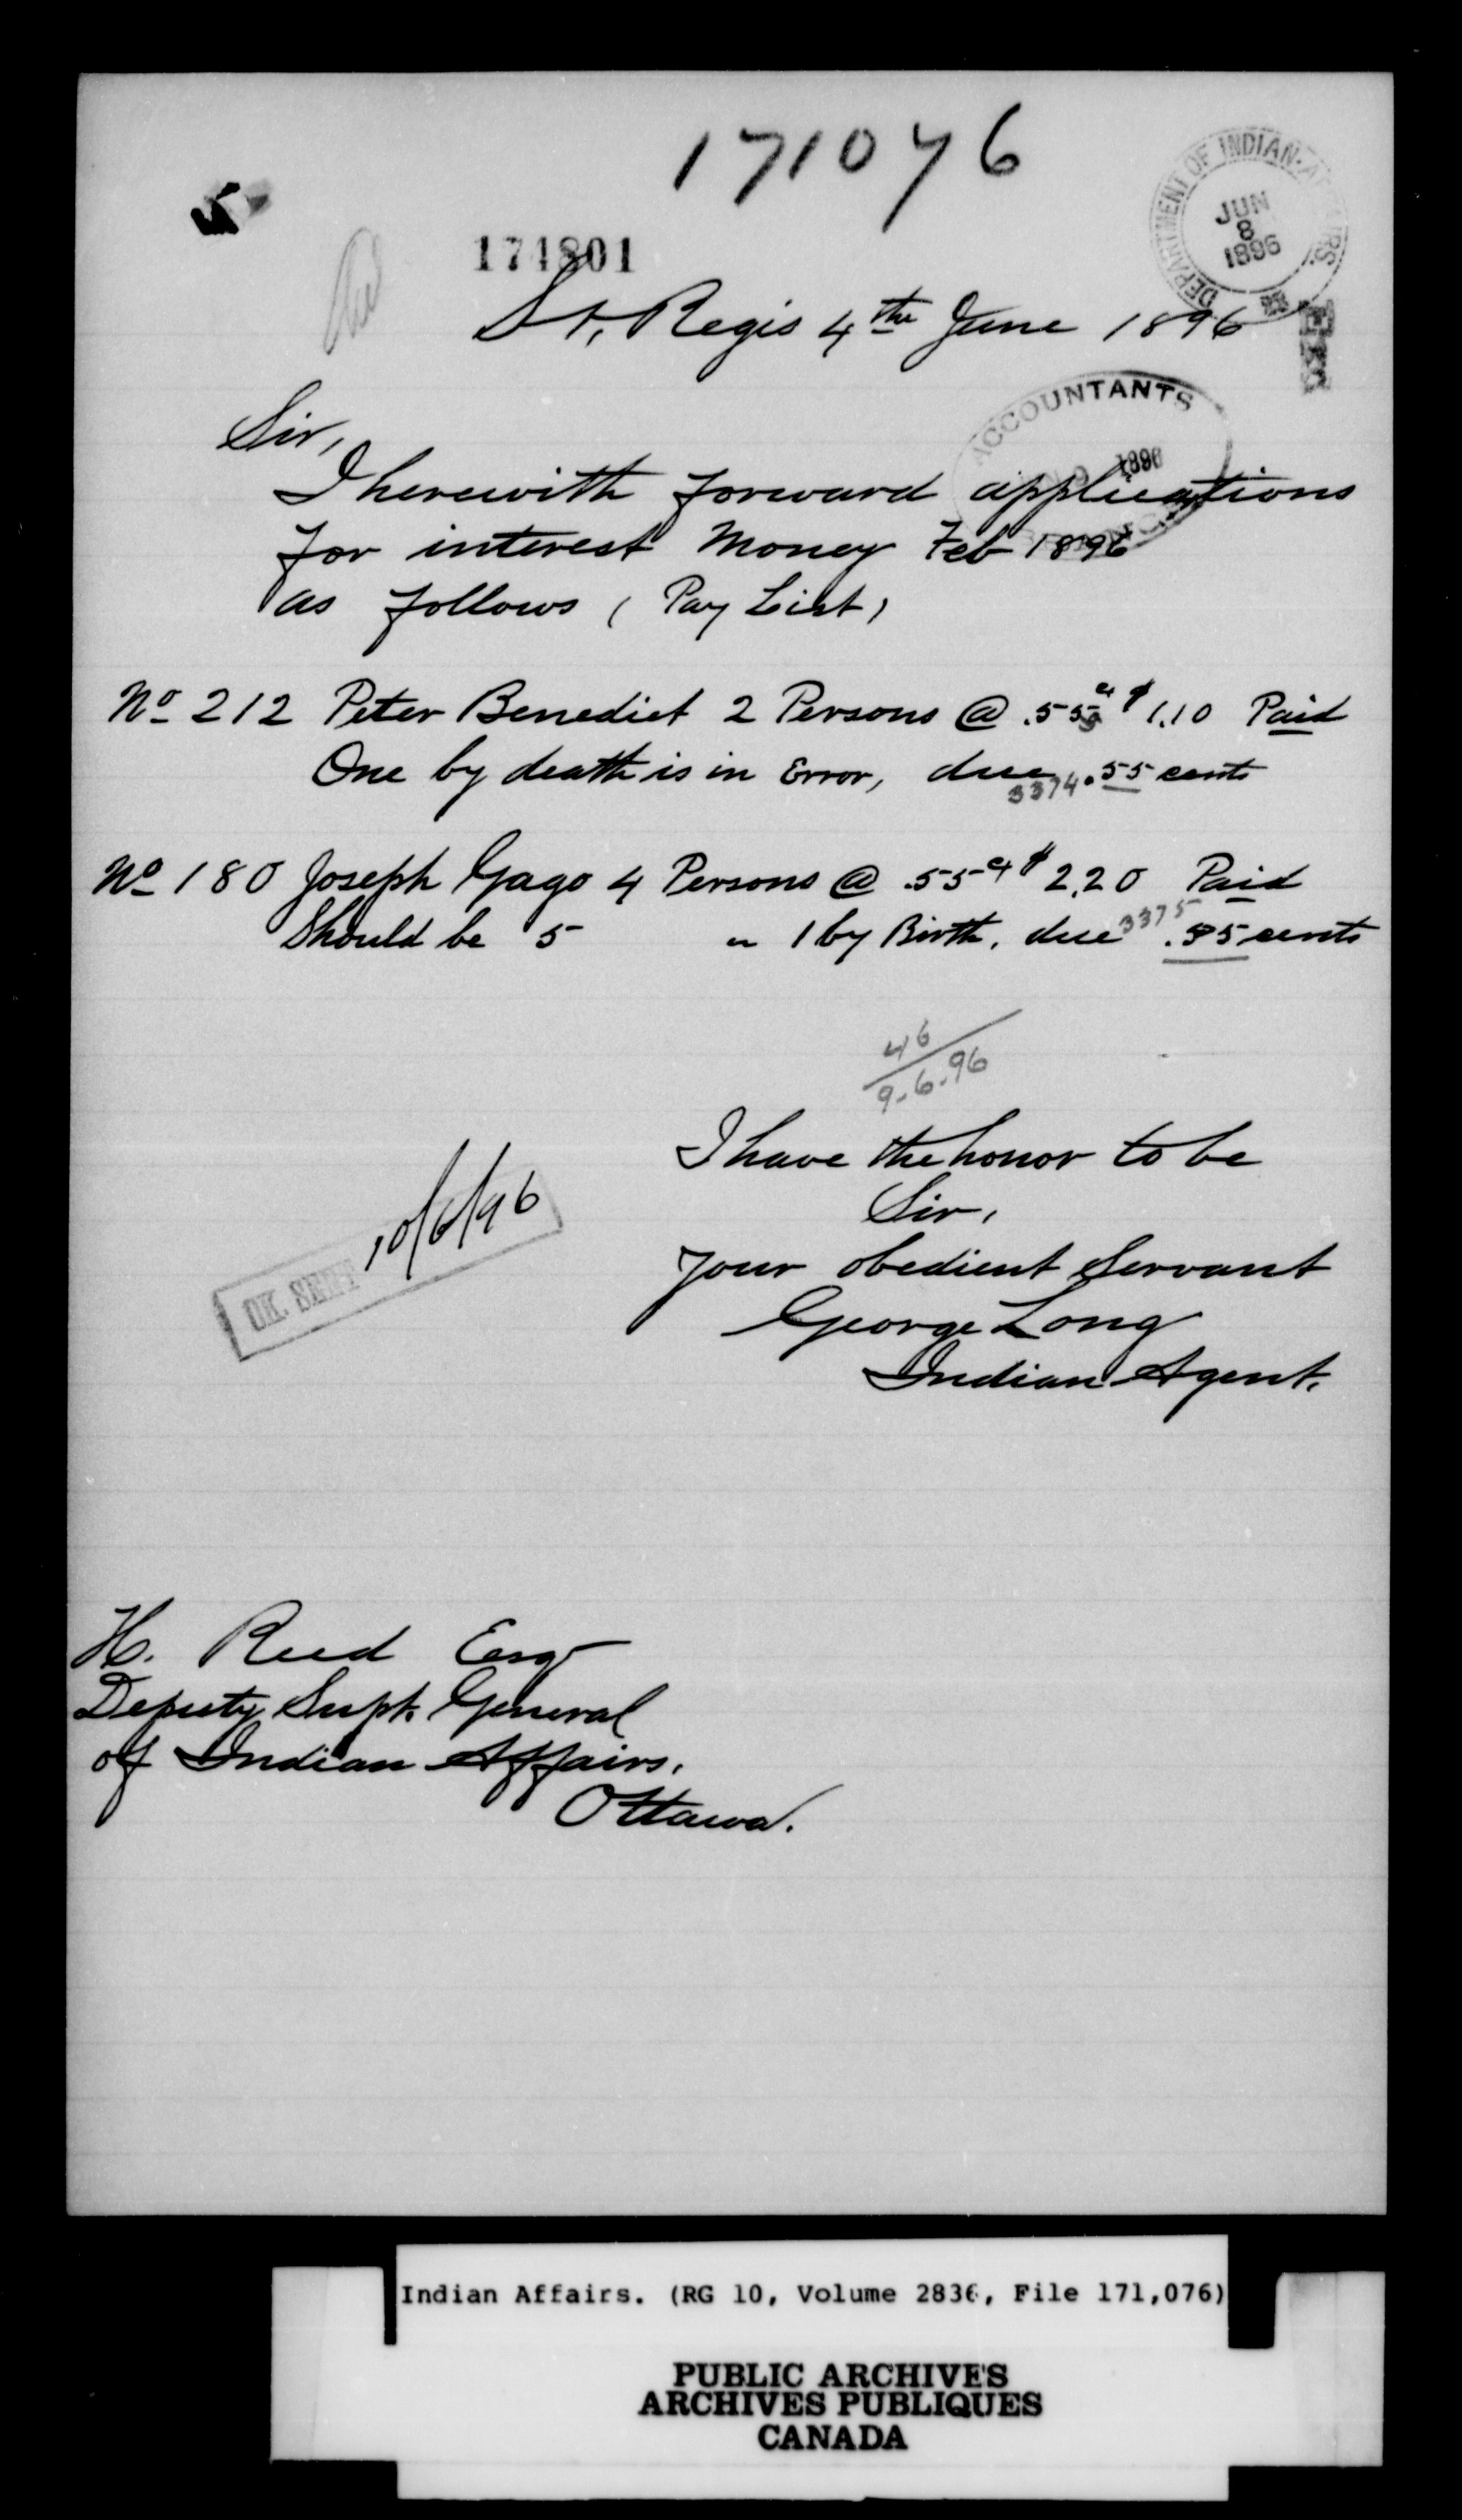 171076
174801
DEPARTMENT OF INDIAN AFFAIRS.
JUN
8
1896
St. Regis 4th June 1896
ACCOUNTANTS
1896
Sir,
I herewith forward applications
for interest Money Feb 1896
as follows ( Pay List )
No 212 Peter Benedict 2 Persons @ .55 cts $1.10 Paid
One by death is in Error, due .55 cents
3374
No 180 Joseph Gago 4 Persons @ .55 cts $2.20 Paid
3375
Should be 5 " 1 by Birth, due .55 cents
46
9-6-96
I have the honor to be
Sir,
Your obedient Servant
George Long
Indian Agent.
10/6/96
CK. SENT
H. Reed Esqr
Deputy Supt. General
of Indian Affairs.
Ottawa.
Indian Affairs. (RG 10, Volume 2836, File 171,076)
PUBLIC ARCHIVES
ARCHIVES PUBLIQUES
CANADA